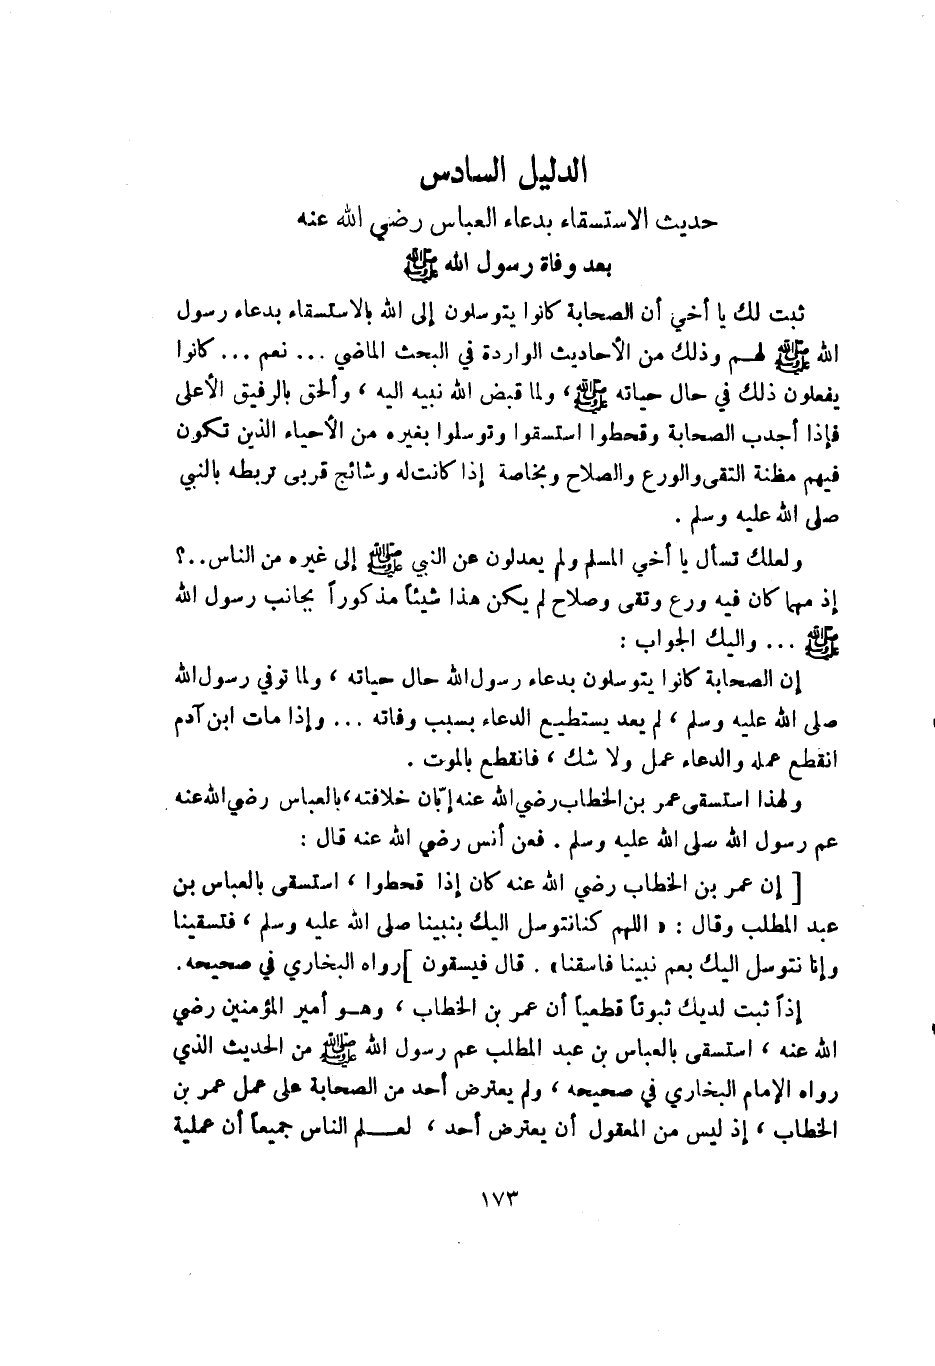 الدليل السادس
حديث الاستسقاء بدعاء العباس رضي الله عنه
بعد وفاة رسول الله ﷺ
ثبت لك يا أخي أن الصحابة كانوا يتوسلون إلى الله بالاستسقاء بدعاء رسول
الله ﷺ لهم وذلك من الأحاديث الواردة في البحث الماضي ... نعم ... كانوا
يفعلون ذلك في حال حياته ﷺ ، ولما قبض الله نبيه اليه ، وألحق بالرفيق الأعلى
فإذا أجدب الصحابة وقحطوا استسقوا وتوسلوا بغيره من الأحياء الذين تكون
فيهم مظنة التقى والورع والصلاح وبخاصة إذا كانت له وشائج قربى تربطه بالنبي
صلى الله عليه وسلم .
ولعلك تسأل يا أخي المسلم ولم يعدلون عن النبي ﷺ إلى غيره من الناس..؟
إذ مهما كان فيه ورع وتقى وصلاح لم يكن هذا شيئاً مذكوراً بجانب رسول الله
ﷺ ... واليك الجواب :
إن الصحابة كانوا يتوسلون بدعاء رسول الله حال حياته ، ولما توفي رسول الله
صلى الله عليه وسلم ، لم يعد يستطيع الدعاء بسبب وفاته ... وإذا مات ابن آدم
انقطع عمله والدعاء عمل ولا شك ، فانقطع بالموت .
ولهذا استسقى عمر بن الخطاب رضي الله عنه إبّان خلافته ، بالعباس رضي الله عنه
عم رسول الله صلى الله عليه وسلم . فعن أنس رضي الله عنه قال :
[ إن عمر بن الخطاب رضي الله عنه كان إذا قحطوا ، استسقى بالعباس بن
عبد المطلب وقال : « اللهم كنا نتوسل اليك بنبينا صلى الله عليه وسلم ، فتسقينا
وإنا نتوسل اليك بعم نبينا فاسقنا» . قال فيسقون ] رواه البخاري في صحيحه.
إذاً ثبت لديك ثبوتاً قطعياً أن عمر بن الخطاب ، وهو أمير المؤمنين رضي
الله عنه ، استسقى بالعباس بن عبد المطلب عم رسول الله ﷺ من الحديث الذي
رواه الإمام البخاري في صحيحه ، ولم يعترض أحد من الصحابة على عمل عمر بن
الخطاب ، إذ ليس من المعقول أن يعترض أحد ، لعلم الناس جميعاً أن عملية
١٧٣